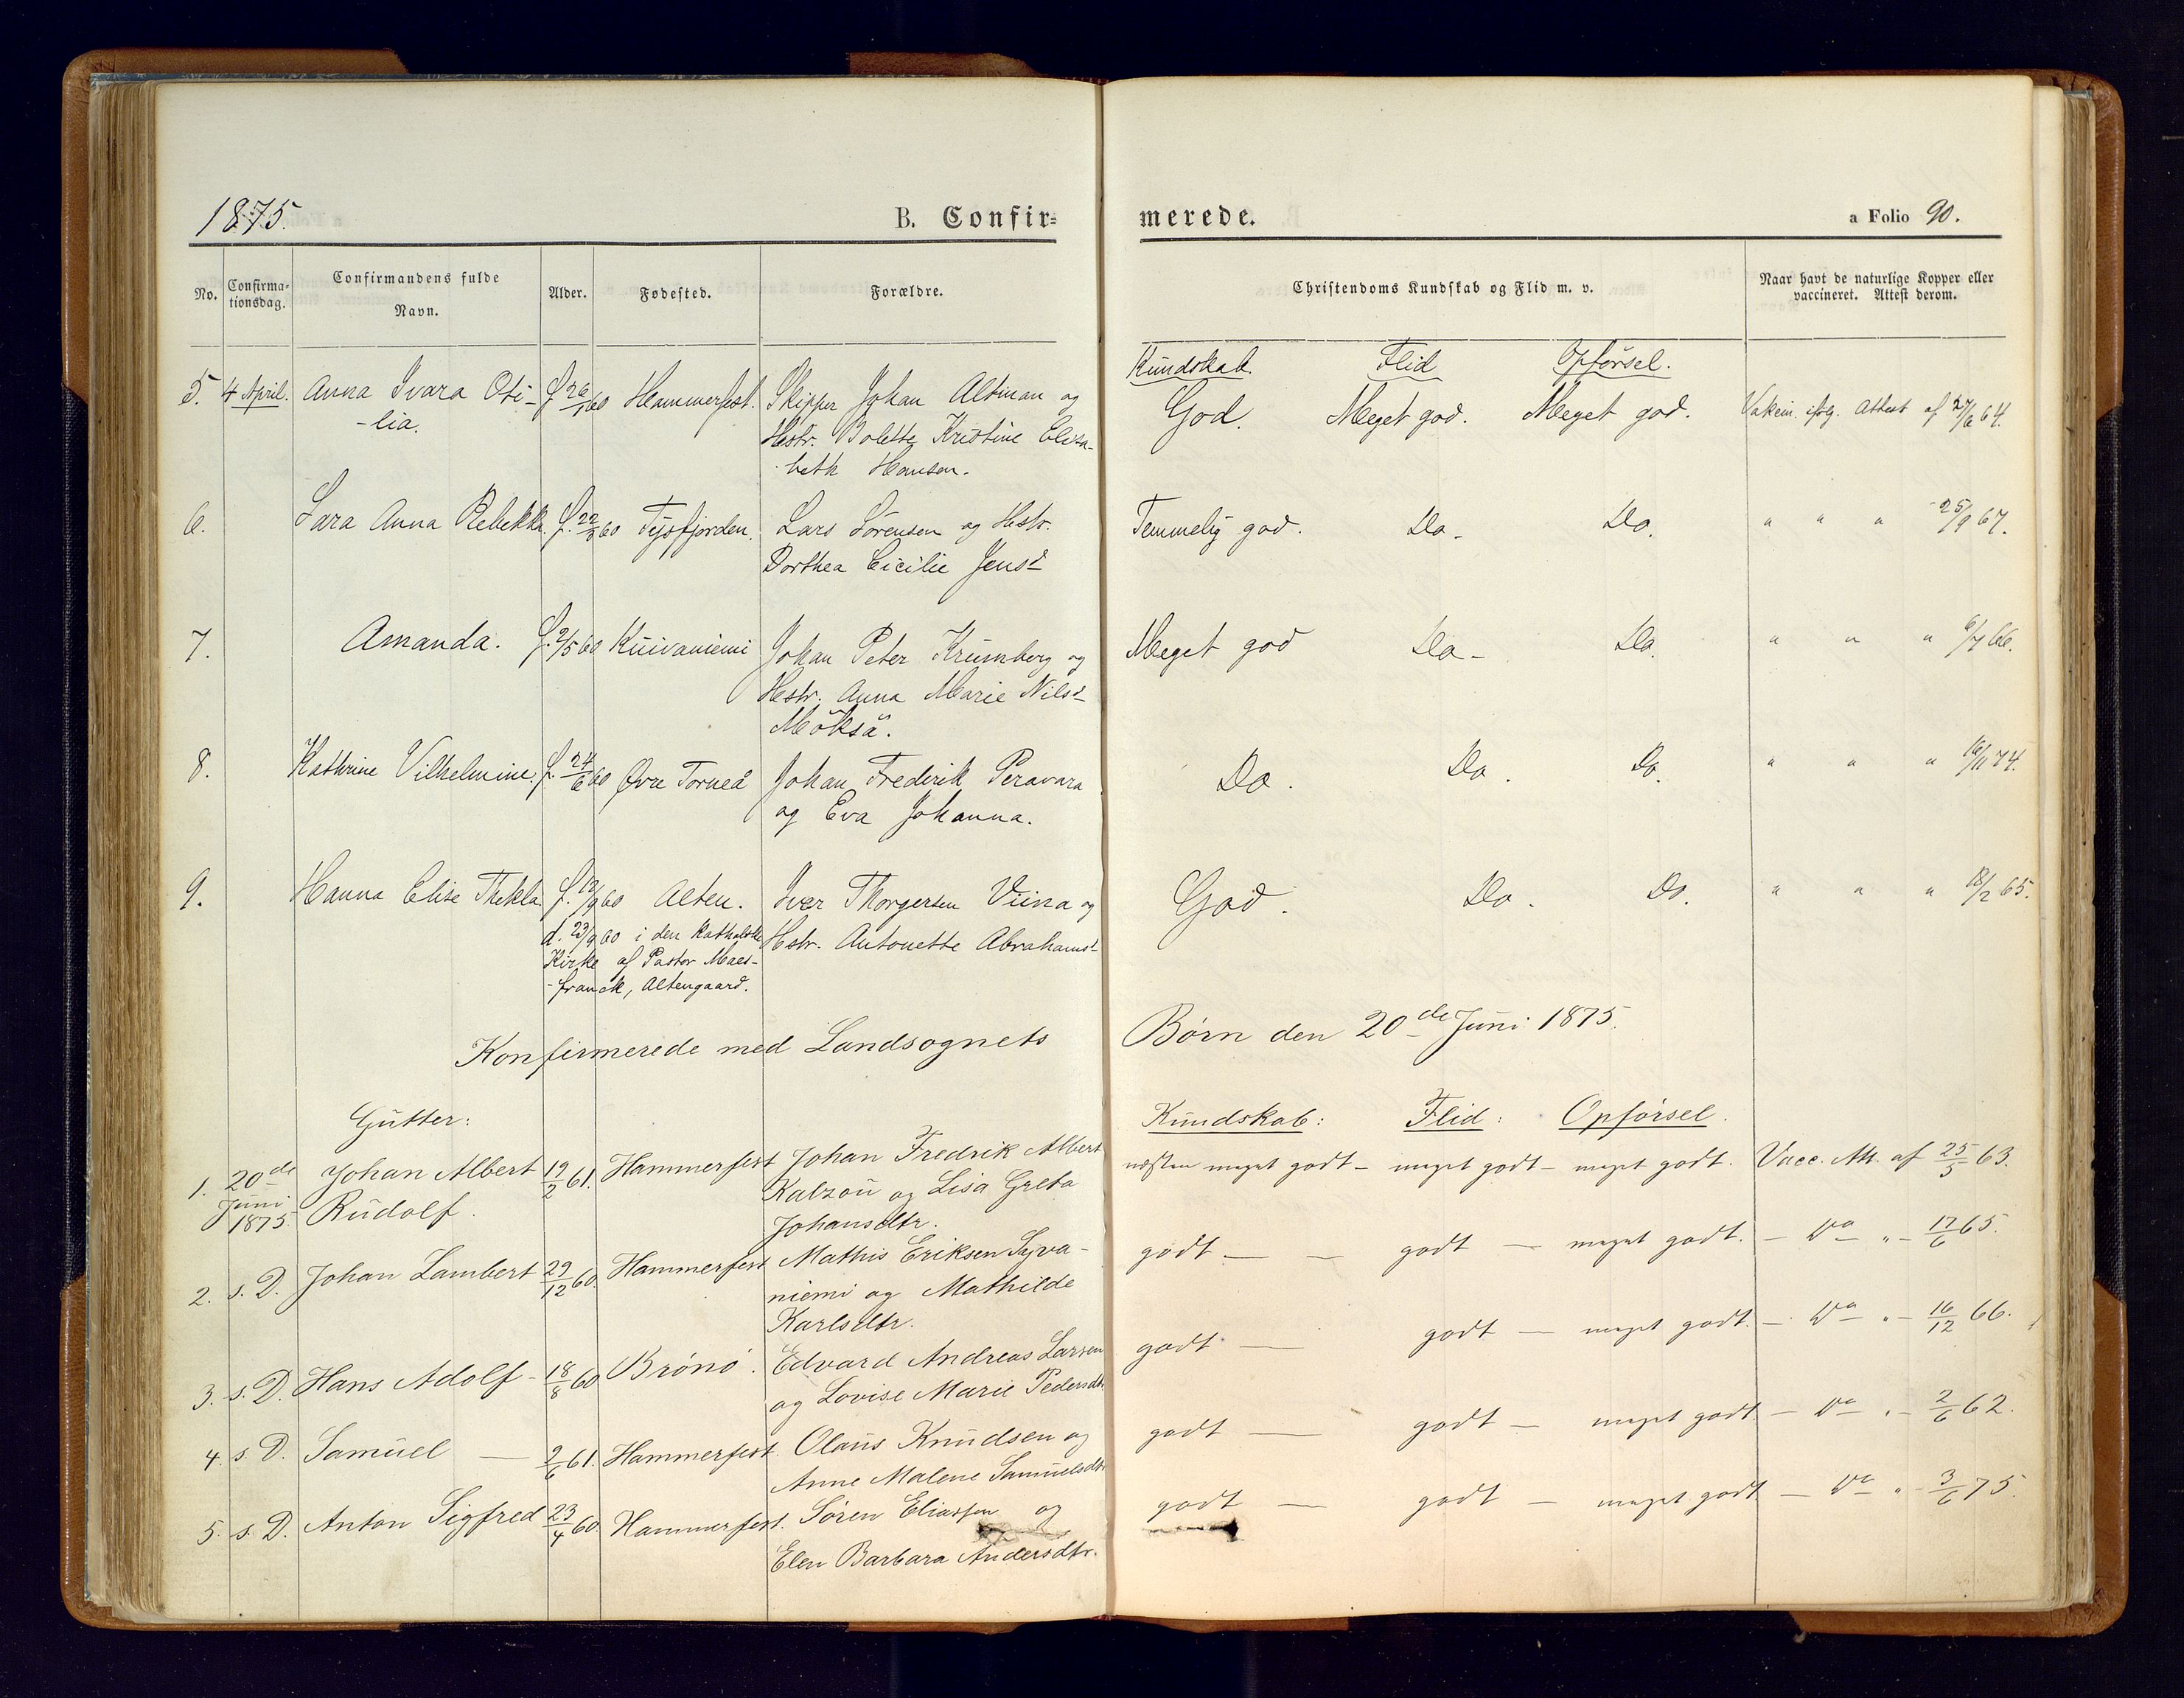 1875.
B. Confir=
merede.
a Folio 90.
No.
Confirma=
tionsdag.
Confirmandens fulde
Navn.
Alder.
Fødested.
Forældre.
Christendoms Kundskab og Flid m. v.
Naar havt de naturlige Kopper eller
vaccineret. Attest derom.
Kundskab. Flid Opførsel.
5. 4 April. Anna Ivara Oti- f. 26/1 60 Hammerfest. Skipper Johan Altman og God. Meget god. Meget god. Vakcin. iflg. Attest af 27/6 64.
-lia. Hstr. Bolette Kristine Elisa-
beth Hansen.
6. Sara Anna Rebekka f. 22/8 60 Tysfjorden. Lars Sørensen og Hstr. Temmelig god. Do. Do. " " " 25/9 67.
Dorthea Cicilie Jensd
7. Amanda. f. 2/5 60 Kuivaniemi Johan Peter Krumberg og Meget god Do. Do. " " " 6/7 66.
Hstr. Anna Marie Nilsd
Möksä.
8. Kathrine Vilhelmine f. 24/6 60 Øvre Torneå Johan Frederik Peravara Do. Do. Do. " " " 16/11 74.
og Eva Johanna.
9. Hanna Elise Thekla f. 12/9 60 Alten. Iver Thorgersen Viina og God. Do. Do. " " " 18/2 65.
d. 23/9 60 i den katholske Hstr. Antonette Abrahamsd
Kirke af Pastor Maes-
-franck, Altengaard.
Konfirmerede med Landsognets Børn den 20de Juni 1875.
Gutter: Kundskab: Flid: Opførsel.
1. 20de Johan Albert 19/2 61. Hammerfest Johan Fredrik Albert næsten meget godt - meget godt - meget godt. Vacc. Att. af 25/5 63.
Juni Rudolf. Kalzou og Lisa Greta
1875. Johansdtr.
2. s. D. Johan Lambert 29/12 60. Hammerfest Mathis Eriksen Syva- godt - - godt - meget godt. - Do " - 17/6 65.
niemi og Mathilde
Karlsdtr.
3. s. D. Hans Adolf - 18/8 60 Brönö. Edvard Andreas Larsen godt - godt - meget godt. - Do " - 16/12 66.
og Lovise Marie Pedersdtr.
4. s. D. Samuel - 2/6 61. Hammerfest. Olaus Knudsen og godt - godt - meget godt - Do " - 2/6 62.
Anne Malene Samuelsdtr.
5. s. D. Anton Sigfred 23/4 60. Hammerfest. Søren Eliassen og godt - godt - meget godt - Do " - 3/6 75.
Elen Barbara Andersdtr.